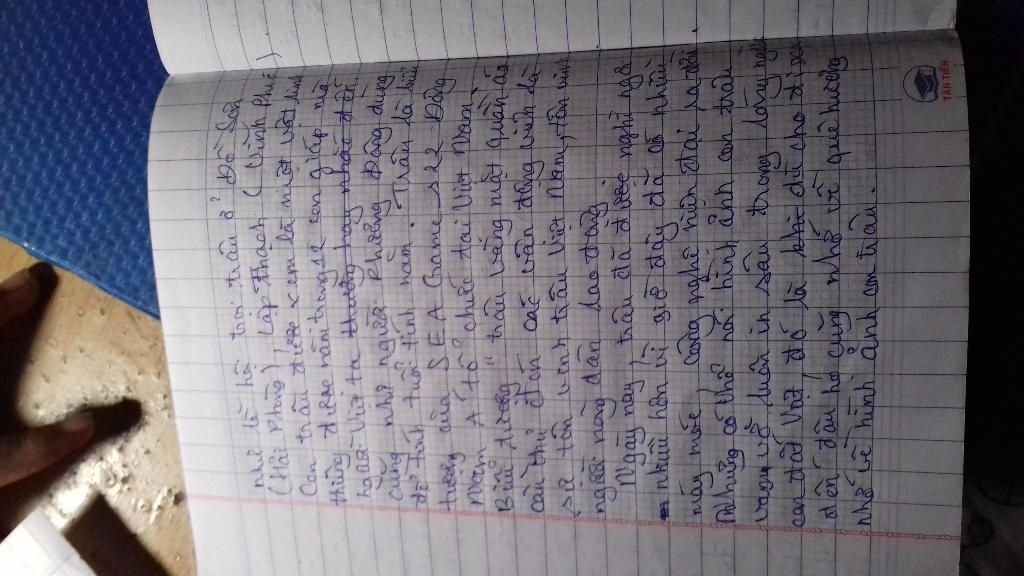 như lễ hội trọi trâu ở Đồ Sơn
(Hải Phòng), Lập Thạch (Vĩnh Phúc).
Con trâu được xem là một vật linh
thiêng được nằm trong 12 con giáp mà
người Việt ta thường hay nhắc đến
cũng như người Phương Đông dùng
để tính tuổi tính năm. Trâu là biểu
tượng của SEA Games 22 Đông
Nam Á tổ chức tại Việt Nam.
Biểu tượng "trâu vàng" mặt quần áo
cầu thủ đón các vận động viên là
sự tôn vinh trâu Việt Nam, tôn vinh
người nông dân lao động.
Ngày nay, trâu đã được nghỉ ngơi
nhiều hơn vì giờ đây đã có nhiều
máy móc công nghệ hiện đại ra đời.
Nhưng có thể nói hình ảnh con trâu
vẫn luôn in sâu trong lòng người
con đất Việt đó là cho dù cho đi xa
đến đâu họ cũng nhớ về quê hương
nhớ về hình ảnh con trâu.
TÂN TIẾN